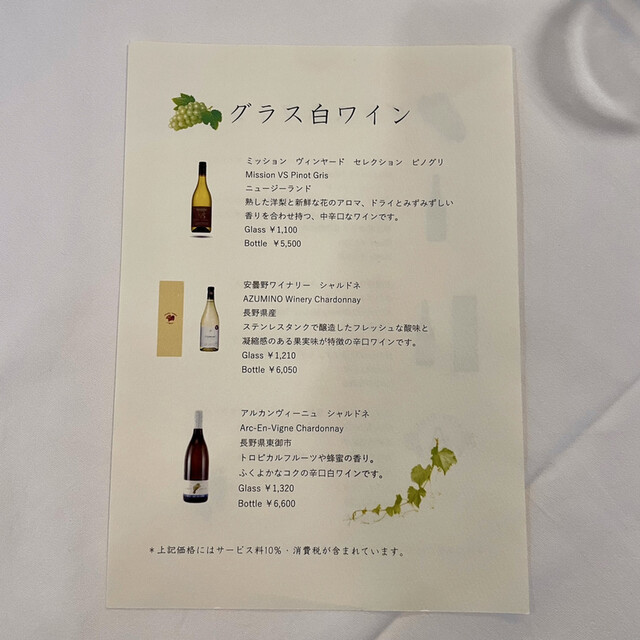 グラス白ワイン
ミッション ヴィンヤード セレクション ピノグリ
Mission VS Pinot Gris
ニュージーランド
熟した洋梨と新鮮な花のアロマ、ドライとみずみずしい
香りを合わせ持つ、中辛口なワインです。
Glass ¥1,100
Bottle ¥5,500
安曇野ワイナリー シャルドネ
AZUMINO Winery Chardonnay
長野県産
ステンレスタンクで醸造したフレッシュな酸味と
凝縮感のある果実味が特徴の辛口ワインです。
Glass ¥1,210
Bottle ¥6,050
アルカンヴィーニュ シャルドネ
Arc-En-Vigne Chardonnay
長野県東御市
トロピカルフルーツや蜂蜜の香り。
ふくよかなコクの辛口白ワインです。
Glass ¥1,320
Bottle ¥6,600
*上記価格にはサービス料10%・消費税が含まれています。